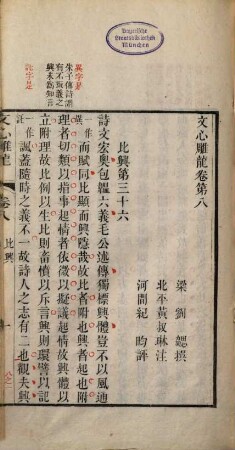 Bayerische
Staatsbibliothek
München
異字是
朱子傳詩謂
有不取義之
興未為知言
託字是
文心雕龍卷第八
梁劉勰撰
北平黃叔琳注
河間紀昀評
比興第三十六
詩文宏奧包韞六義毛公述傳獨標興體豈不以風通
一作異而賦同比顯而興隱哉故比者附也興者起也附
理者切類以指事起情者依微以擬議起情故興體以
立附理故比例以生比則畜憤以斥言興則環譬以記
一作託諷蓋隨時之義不一故詩人之志有二也觀夫興
文心雕龍 卷八 比興 一